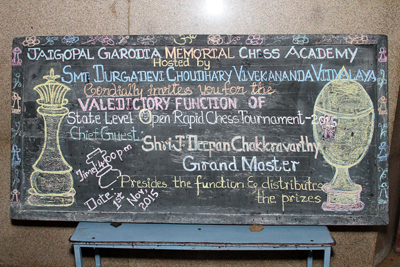 Jaigopal Garodia Memorial Chess Academy
Hosted by
Smt. Durgadevi Choudhary Vivekananda Vidyalaya
Cordially invites You for the
VALEDICTORY FUNCTION OF
State Level Open Rapid Chess Tournament-2015
Chief Guest:
Shri. J. Deepan Chakkravarthy
Grand Master
Time: 4.00 pm
Date: 1st Nov, 2015
Presides the function & distributes
the prizes